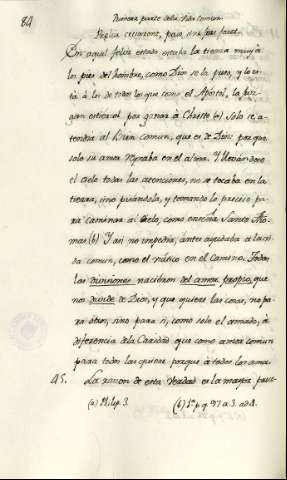 84
Primera parte dela Vida Comun
En aquel feliz estado estaba la tierra mui à
los pies del hombre, como Dios se la puso, y lo es-
tà à los de todos los que como el Apóstol, la juz-
gan estiercol por ganar à Christo (a) solo se a-
tendia al Bien comun, que es de Dios porque
solo su amor Reynaba en el alma. Y llevandose
el Cielo todas las atenciones, no se tocaba en la
tierra, sino pisandola, y tomando lo preciso pa-
ra caminar al Cielo, como enseña Santo Tho-
mas (b) Y asi no impedia, antes ayudaba à la vi-
da comun, como el viatico en el Camino. Todas
las divisiones nacieron del amor propio, que
nos divide de Dios, y que quiere las cosas, no pa-
ra otros, sino para sí, como solo el armado, à
diferencia dela Caridad que como amor comun
para todos las quiere porque à todos los ama.
45. La razon de esta Verdad es la maior prue-
(a) Philip. 3. (b) 1ª p. q. 97 a. 3. ad 4.